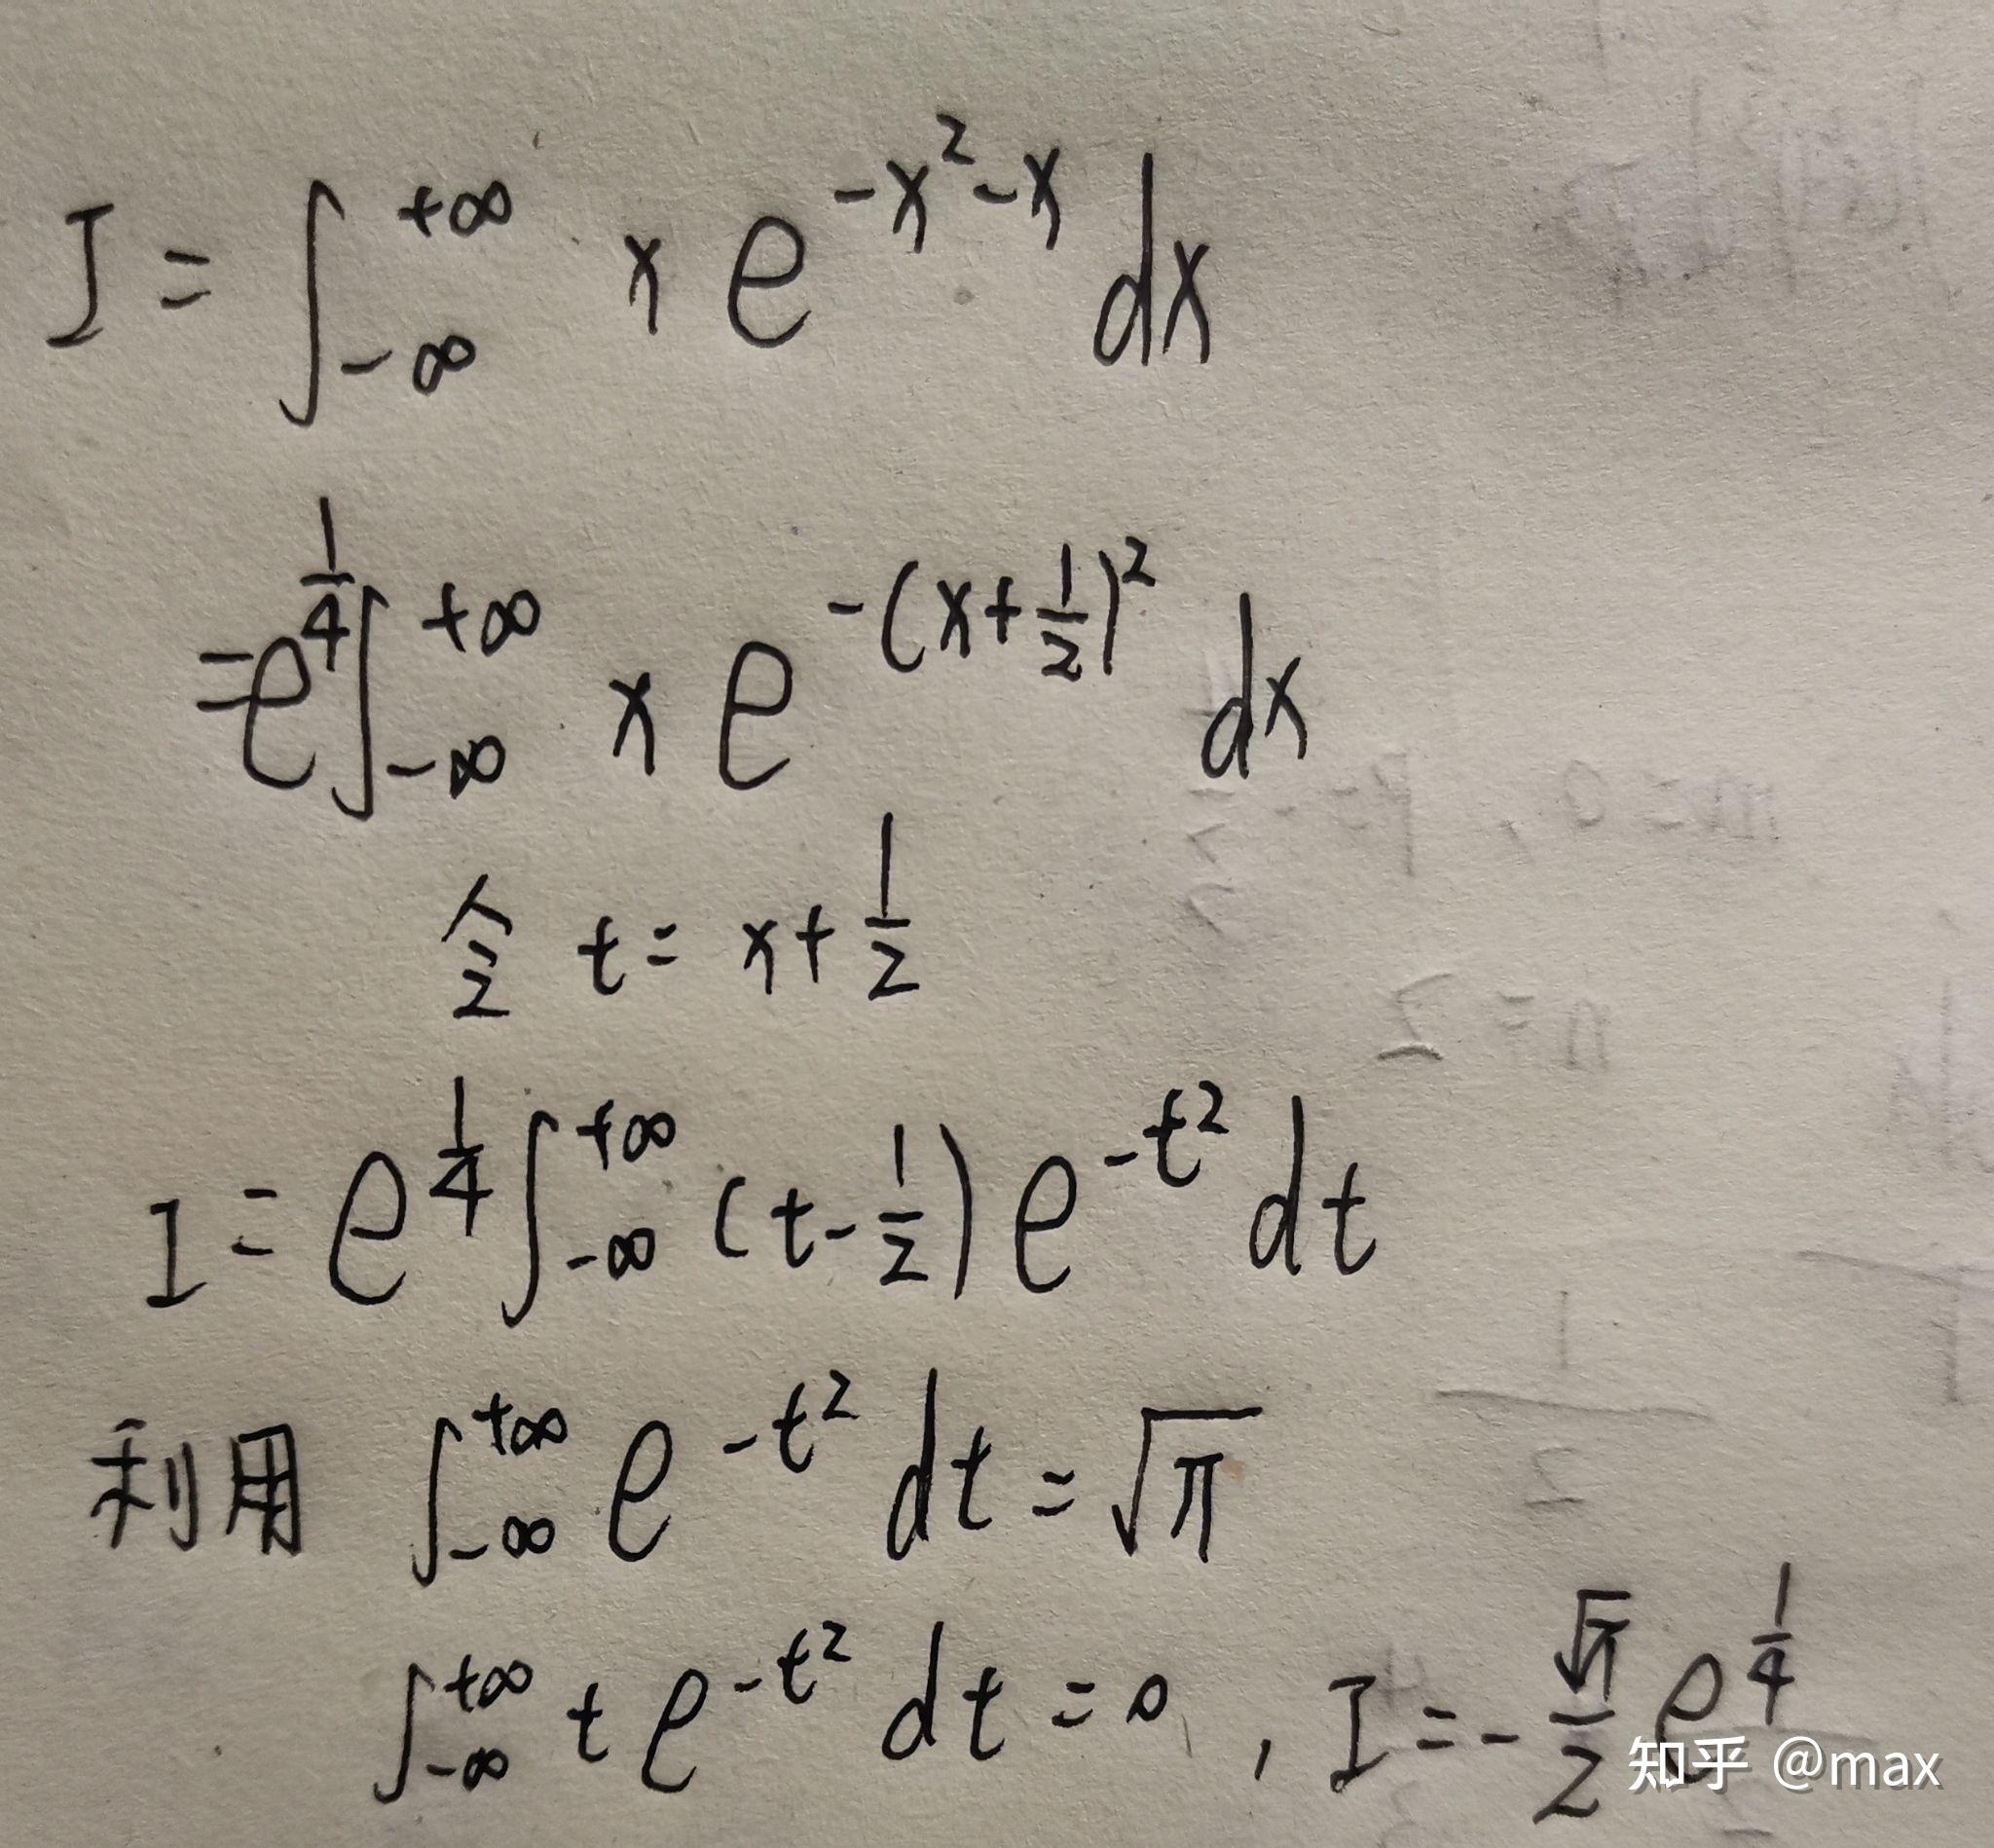 I = ∫_{-∞}^{+∞} x e^{-x²-x} dx
= e^{1/4} ∫_{-∞}^{+∞} x e^{-(x+1/2)²} dx
令 t = x + 1/2
I = e^{1/4} ∫_{-∞}^{+∞} (t - 1/2) e^{-t²} dt
利用 ∫_{-∞}^{+∞} e^{-t²} dt = √π
∫_{-∞}^{+∞} t e^{-t²} dt = 0 , I = - √π/2 e^{1/4}
知乎 @max